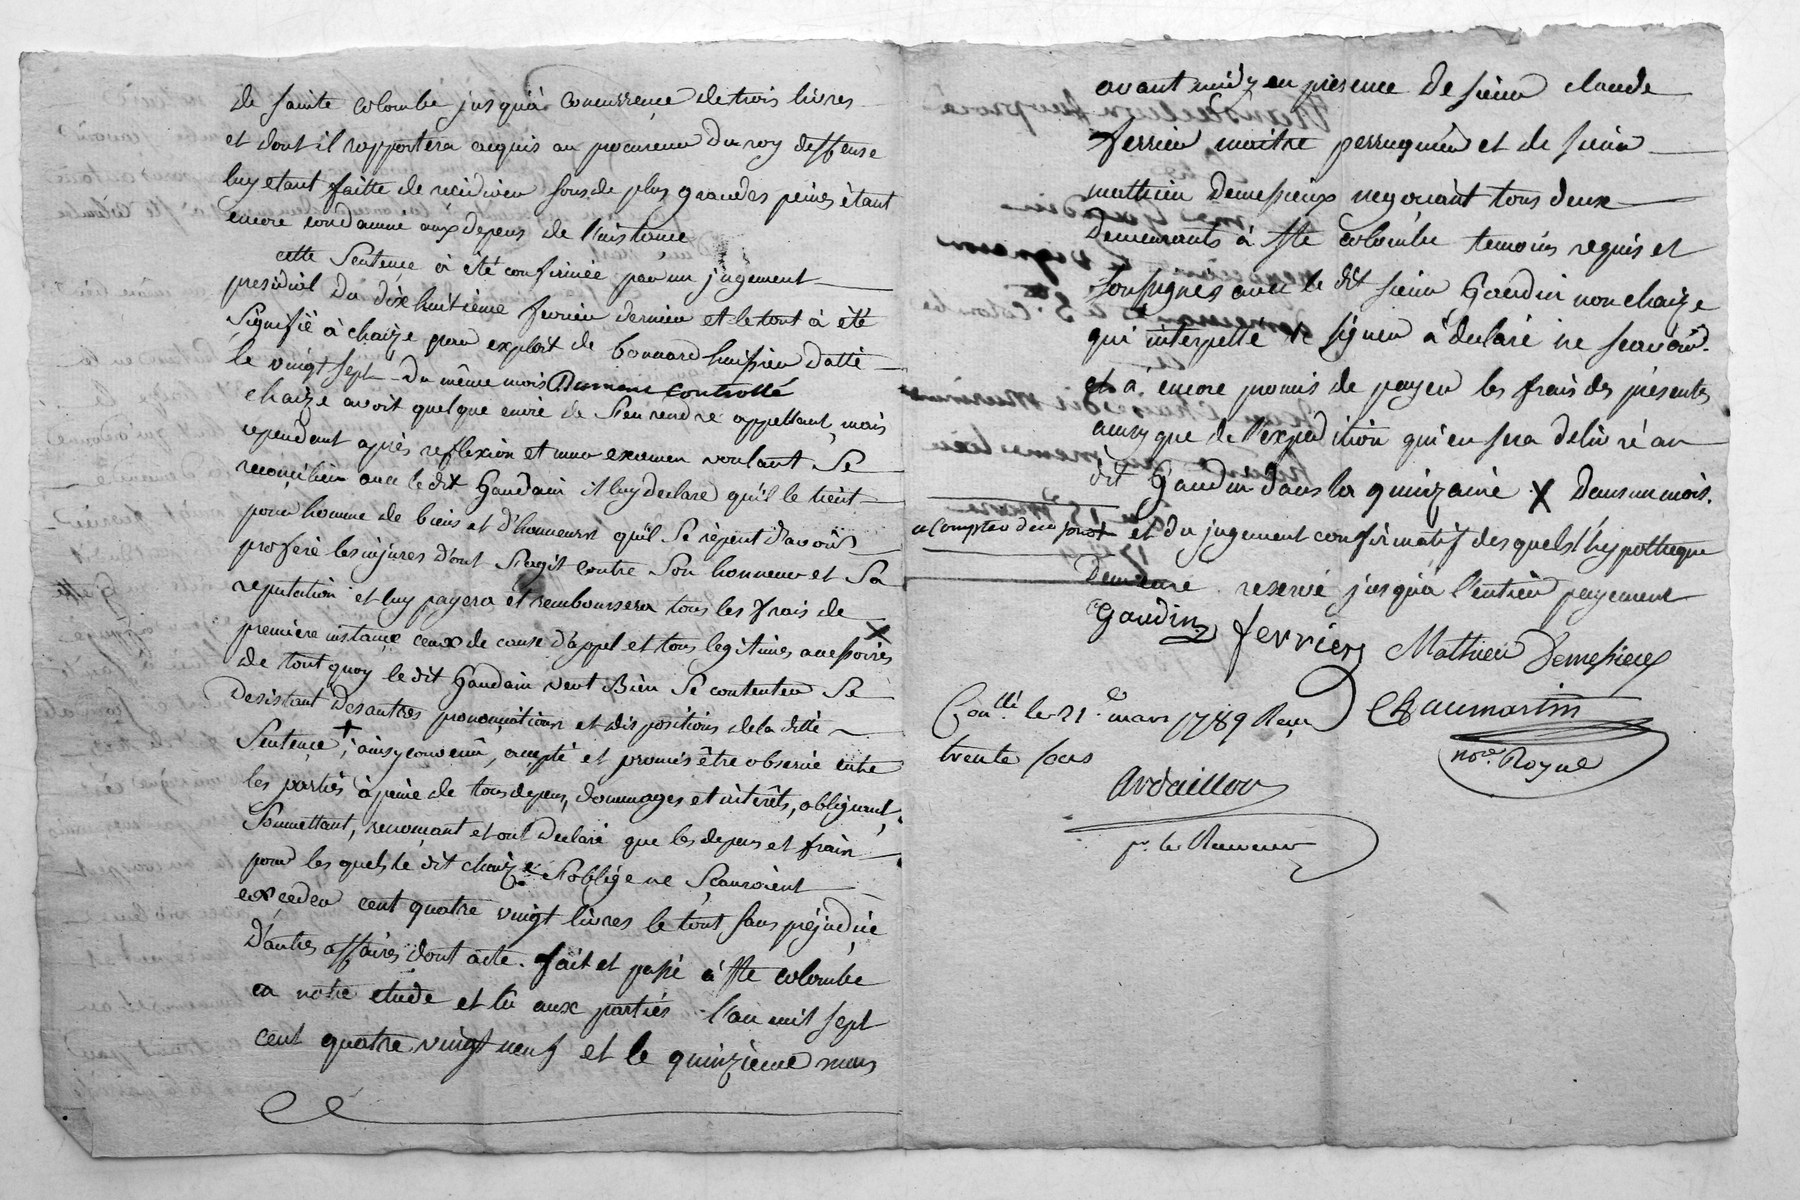 de sainte colombe jusqu'à concurrence de trois livres
et dont il rapportera acquis au procureur du roy deffense
luy etant faitte de recidiver sous de plus grandes peines étant
encore condamné aux depens de l'instance
cette Sentence à été confirmée par un jugement
presidial du dix huitieme fevrier dernier et le tout à été
Signifié à chaize par exploit de bonnard huissier datté
le vingt sept du même mois Dument controllé
chaize avoit quelque envie de S'en rendre appellant, mais
cependant après reflexion et mur examen voulant Se
reconcilier avec le dit Gaudain il luy declare qu'il le tient
pour homme de biens et d'honneurs qu'il Se répent d'avoir
proferé les injures d'ont S'agit contre Son honneur et Sa
reputation et luy payera et remboursera tous les frais de
première instance ceux de cause d'appel et tous legitimes accessoires X
de tout quoy le dit Gaudain veut Bien Se contenter Se
Desistant Des autres prononciations et dispositions de la ditte
Sentence +, ainsy convenu, accepté et promis être observé entre
les parties à peine de tous depens, dommages et intérêts, obligeant,
Soumettant, renonçant et ont Declaré que les depens et frais
pour les quels le dit chaize S'oblige ne Sçauroient
exceder cent quatre vingt livres le tout Sans préjudice
D'autres affaires dont acte. fait et passé à Ste colombe
en notre etude et lû aux parties l'an mil sept
cent quatre vingt neuf et le quinzieme mars
avant midy en présence de sieur claude
ferrier maitre perruquier et de sieur
mathieu demessieux negociant tous deux
demeurants à Ste colombe temoins requis et
soussignés avec le dit sieur Gaudin non chaize
qui interpellé de signer à declaré ne scavoir.
et a encore promis de payer les frais des présentes
ainsy que de l'expedition qui en sera delivré au
dit Gaudin dans la quinzaine X Dans un mois
a compter de ce jour + et du jugement confirmatif des quels l'hypotheque
Demeure reservé jusqu'à l'entier payement
Gaudin ferrier Mathieu Demessieux
Chaumartin
no.re Royal
Con.llé le 21.e mars 1789 Reçu
trente sous
Ardaillon
pr le Receveur